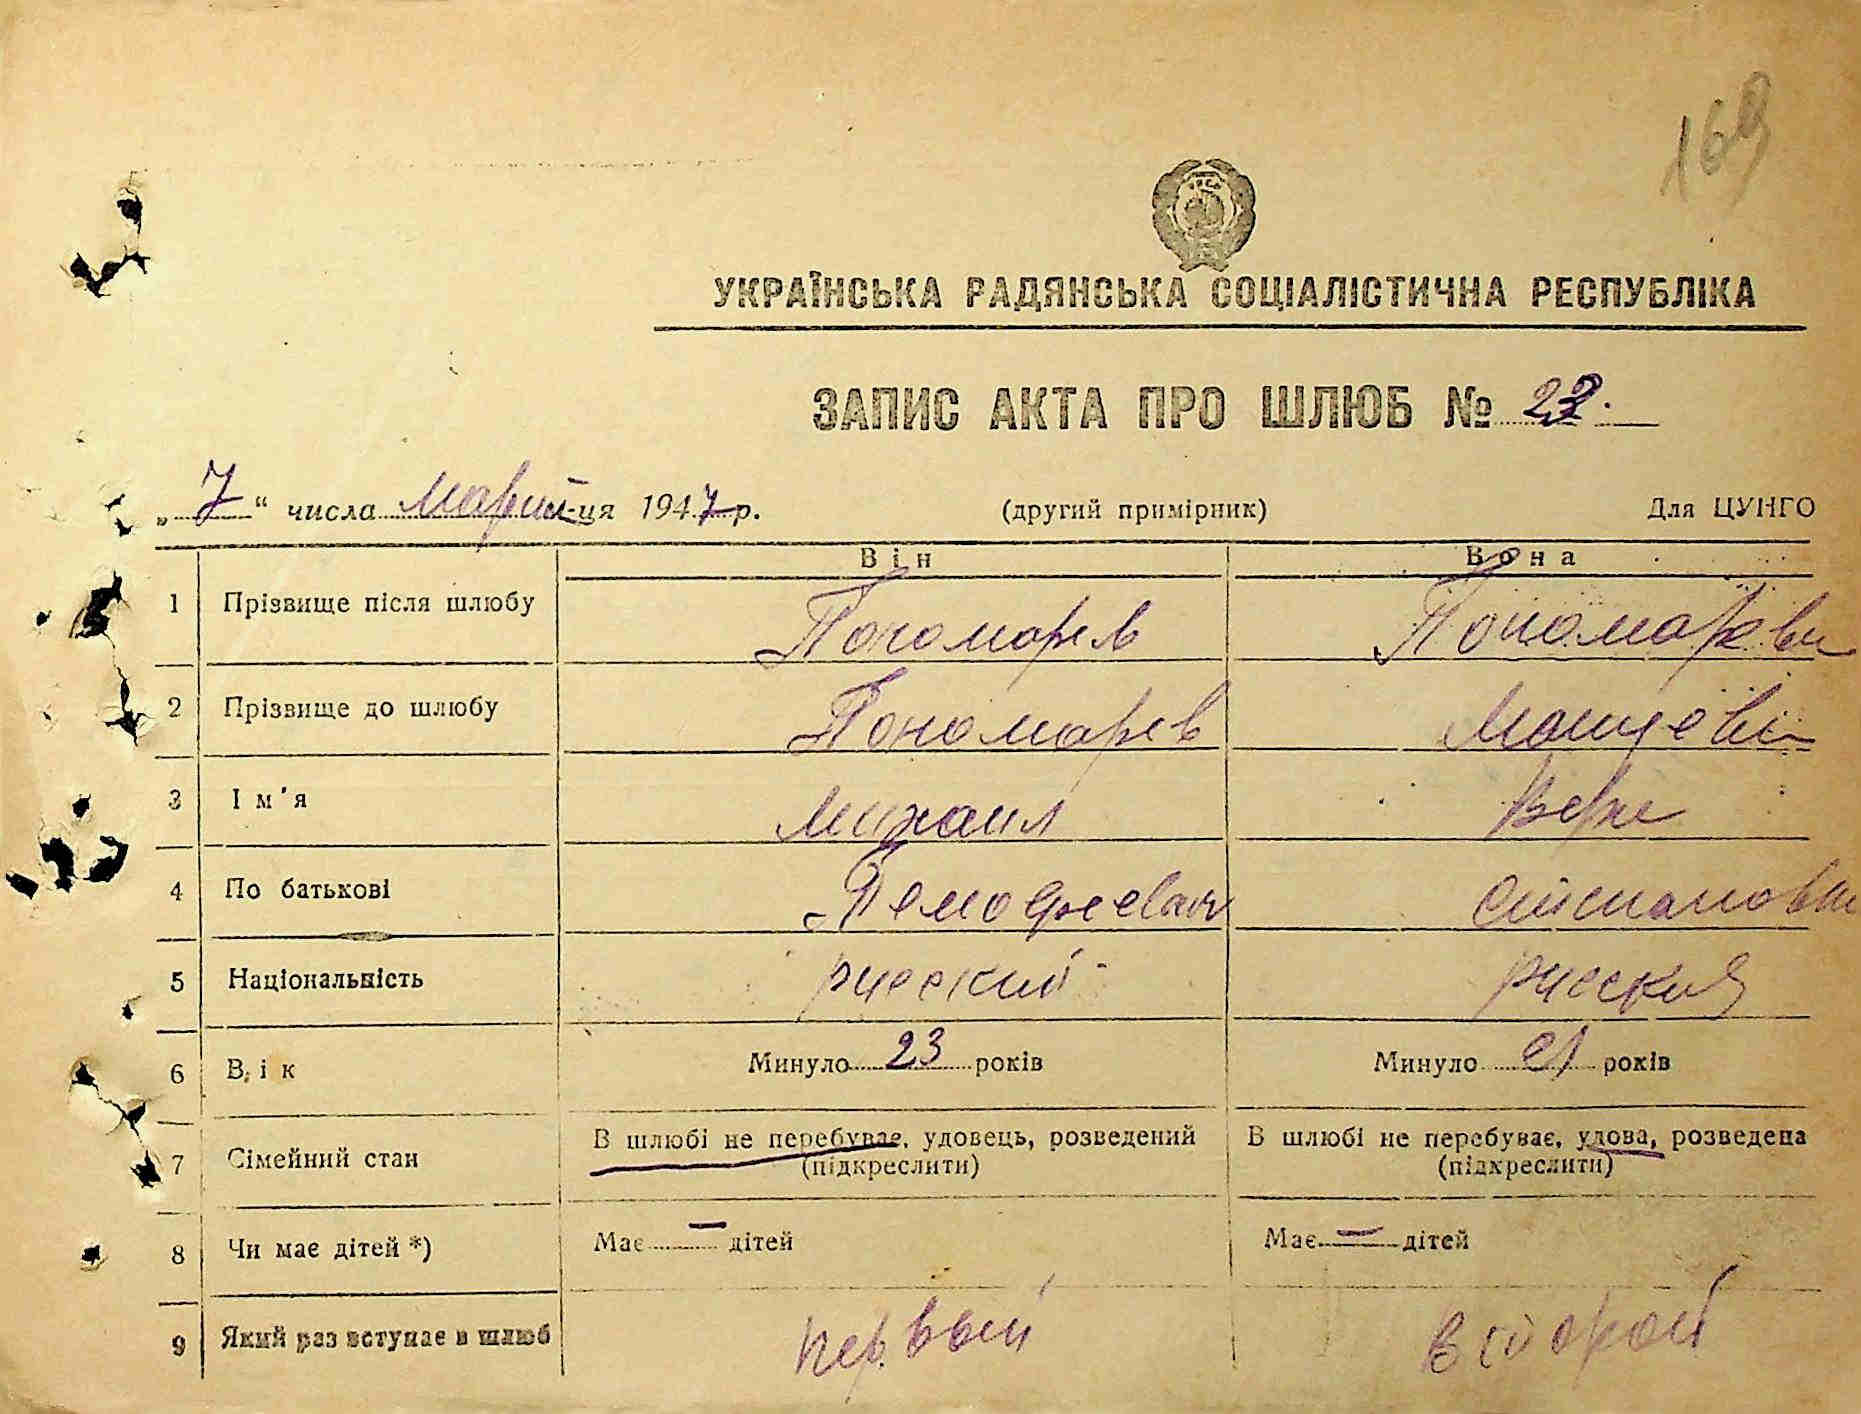 169
УКРАЇНСЬКА РАДЯНСЬКА СОЦІАЛІСТИЧНА РЕСПУБЛІКА
ЗАПИС АКТА ПРО ШЛЮБ №
„7“ числа м-ця 1947 р. (другий примірник) Для ЦУНГО
Він Вона
1 Прізвище після шлюбу Пономарев Пономарева
2 Прізвище до шлюбу Пономарев
3 Ім'я Михаил Вера
4 По батькові Тимофеевич Степановна
5 Національність русский русская
6 Вік Минуло 23 років Минуло 21 років
7 Сімейний стан В шлюбі не перебуває, удовець, розведений В шлюбі не перебуває, удова, розведена
(підкреслити) (підкреслити)
8 Чи має дітей *) Має — дітей Має — дітей
9 Який раз вступає в шлюб первый второй